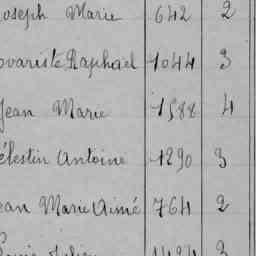 Joseph Marie 642 2
ovariste Raphael 1044 3
Jean Marie 1588 4
élestin Antoine 1290 3
ean Marie Aimé 764 2